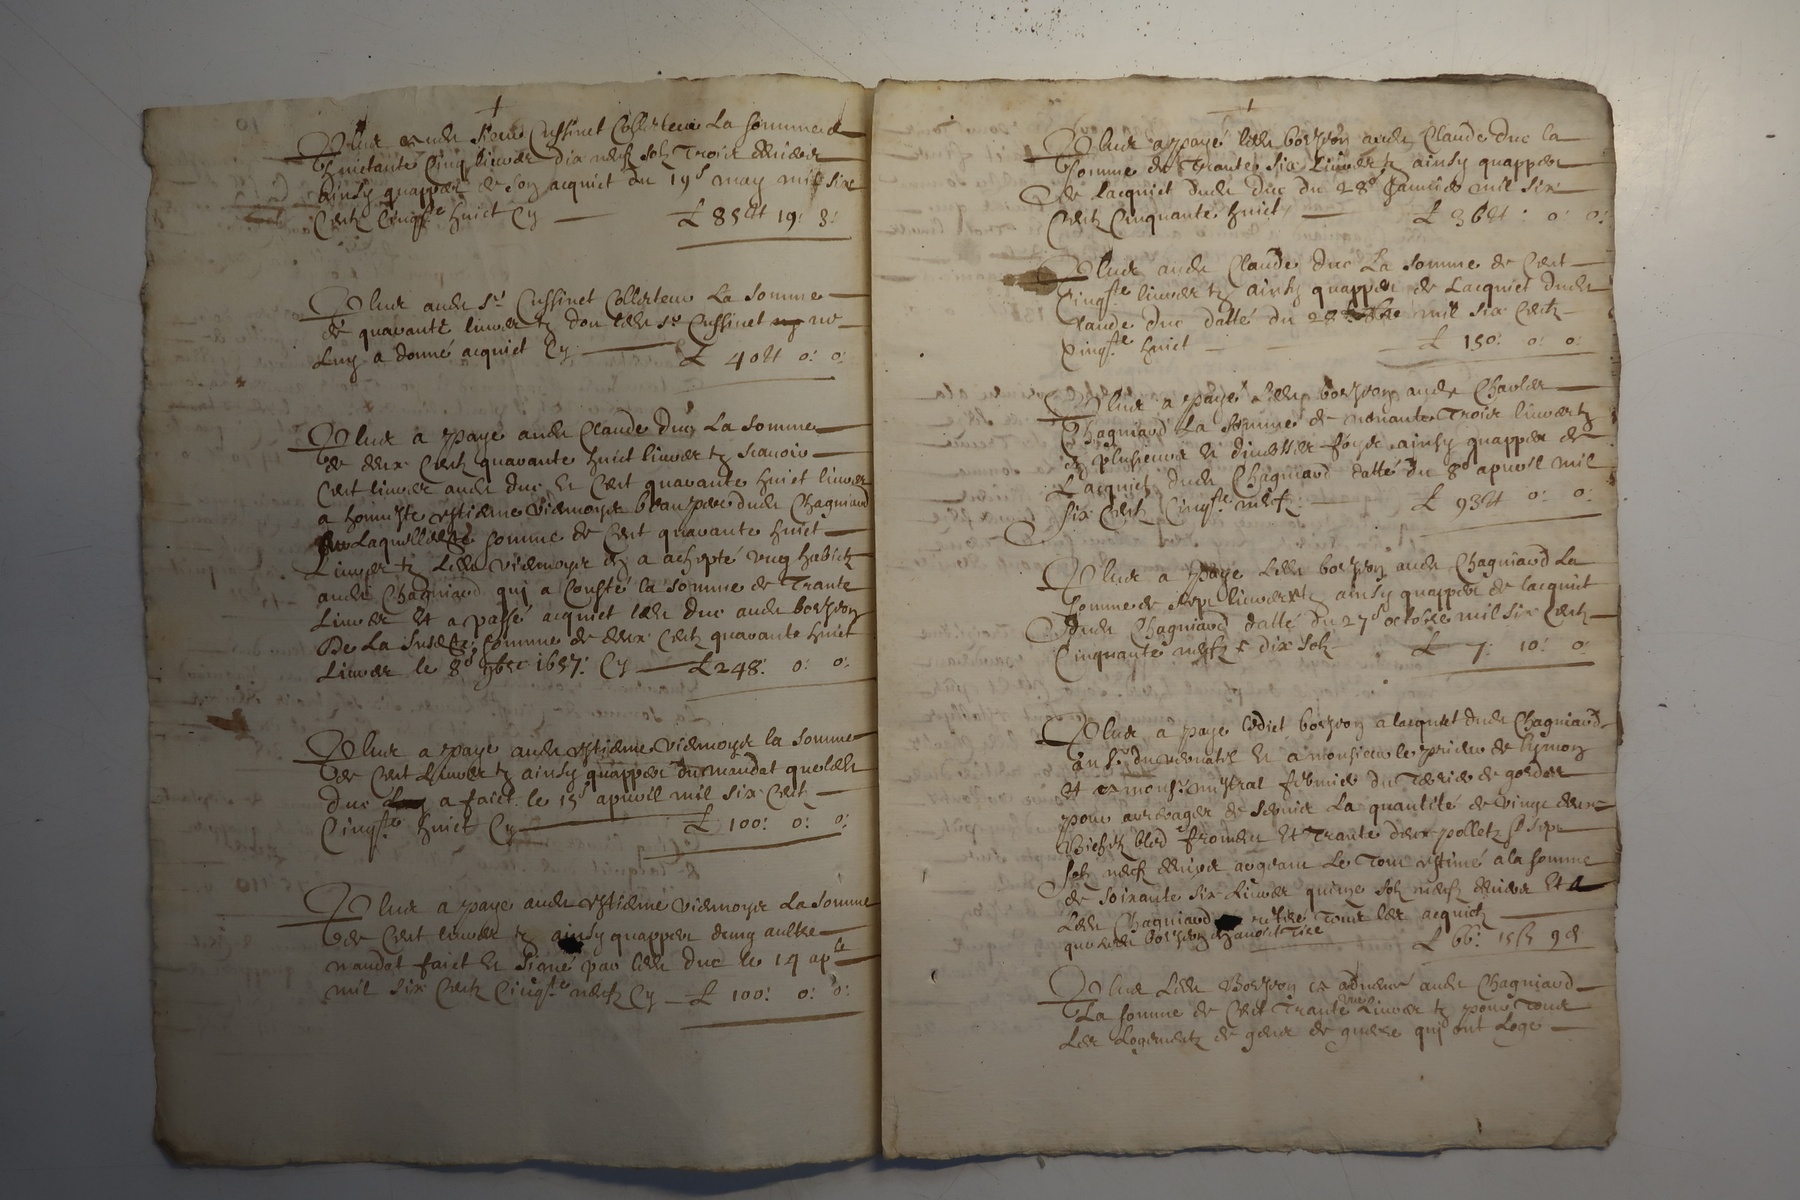 Plus audit sieur Cussinet Collecteur La somme de
huictante Cinq livres dix neufz solz Trois deniers
Ainsy quappert de son acquict du 19e may mil six
Centz Cinqte huict Cy £ 85lt 19: 3:
Plus audit sr Cussinet Collecteur La somme
de quarante livres tz dont ledit sr Cussinet ne
Luy a donné acquict Cy £ 40lt 0: 0:
Plus a payé audit Claude Duc La somme
de deux Centz quarante huict livres tz scavoir
Cent livres audit duc et Cent quarante huict livres
a honneste estienne Viemoyse beaupere dudit Chagniard
Laquelle somme de Cent quarante huict
Livres tz Ledit Viemoyse en a achepté ung habictz
audit Chagniard qui a Cousté la somme de Trante
Livres Et a passé acquict ledit duc audit borsson
De La susdte somme de deux Centz quarante huict
Livres le 8e 9bre 1657: Cy £ 248: 0: 0:
Plus a payé audit estienne Viemoyse la somme
de Cent Livres tz ainsy quappert du mandat que ledit
duc a faict le 15e apvril mil six Cent
Cinqte huict Cy £ 100: 0: 0:
Plus a payé audit estienne Viemoyse La somme
de Cent livres tz ainsy quappert dung aultre
mandat faict et signé par ledit duc le 14 apvl
mil six Centz Cinqte neufz Cy £ 100: 0: 0:
Plus a payé ledit borsson audit Claude duc la
somme de Trante six Livres tz ainsy quappert
de lacquict dudit duc du 28e Janvier mil six
Centz Cinquante huict £ 36lt: 0: 0:
Plus audit Claude duc La somme de Cent
Cinqte livres tz ainsy quappert de Lacquict dudit
Claude duc datté du mil six Centz
Cinqte huict £ 150: 0: 0:
Plus a payé Ledit borsson audit Charles
Chagniard La somme de nonante Trois livres tz
en plusieurs et diverses foys ainsy quappert de
Lacquict dudit Chagniard datté du 8e apvril mil
six Centz Cinqte neufz £ 93lt 0: 0:
Plus a payé Ledit borsson audit Chagniard La
somme de sept livres tz ainsy quappert de lacquict
dudit Chagniard datté du 27e octobre mil six Centz
Cinquante neufz & dix solz £ 7: 10: 0:
Plus a payé ledict borsson a lacquict dudit Chagniard
au sr et a monsieur le prieur de
Et a monsr mistral fermier du
pour arreyrages de service La quantité de vingt deux
Bichetz bled froment Et Trante deux polletz sept
solz neufz deniers argent Le Tout estimé a la somme
de soixante six Livres quinze solz neufz deniers Et a
Ledit Chagniard retiré Tous les acquictz
que ledit borsson en avoit Tiré £ 66: 15s 9d
Plus Ledit Borsson a audit Chagniard
La somme de Cent Trante Livres tz pour Tous
Les Logementz de gens de guerre qui ont Logé